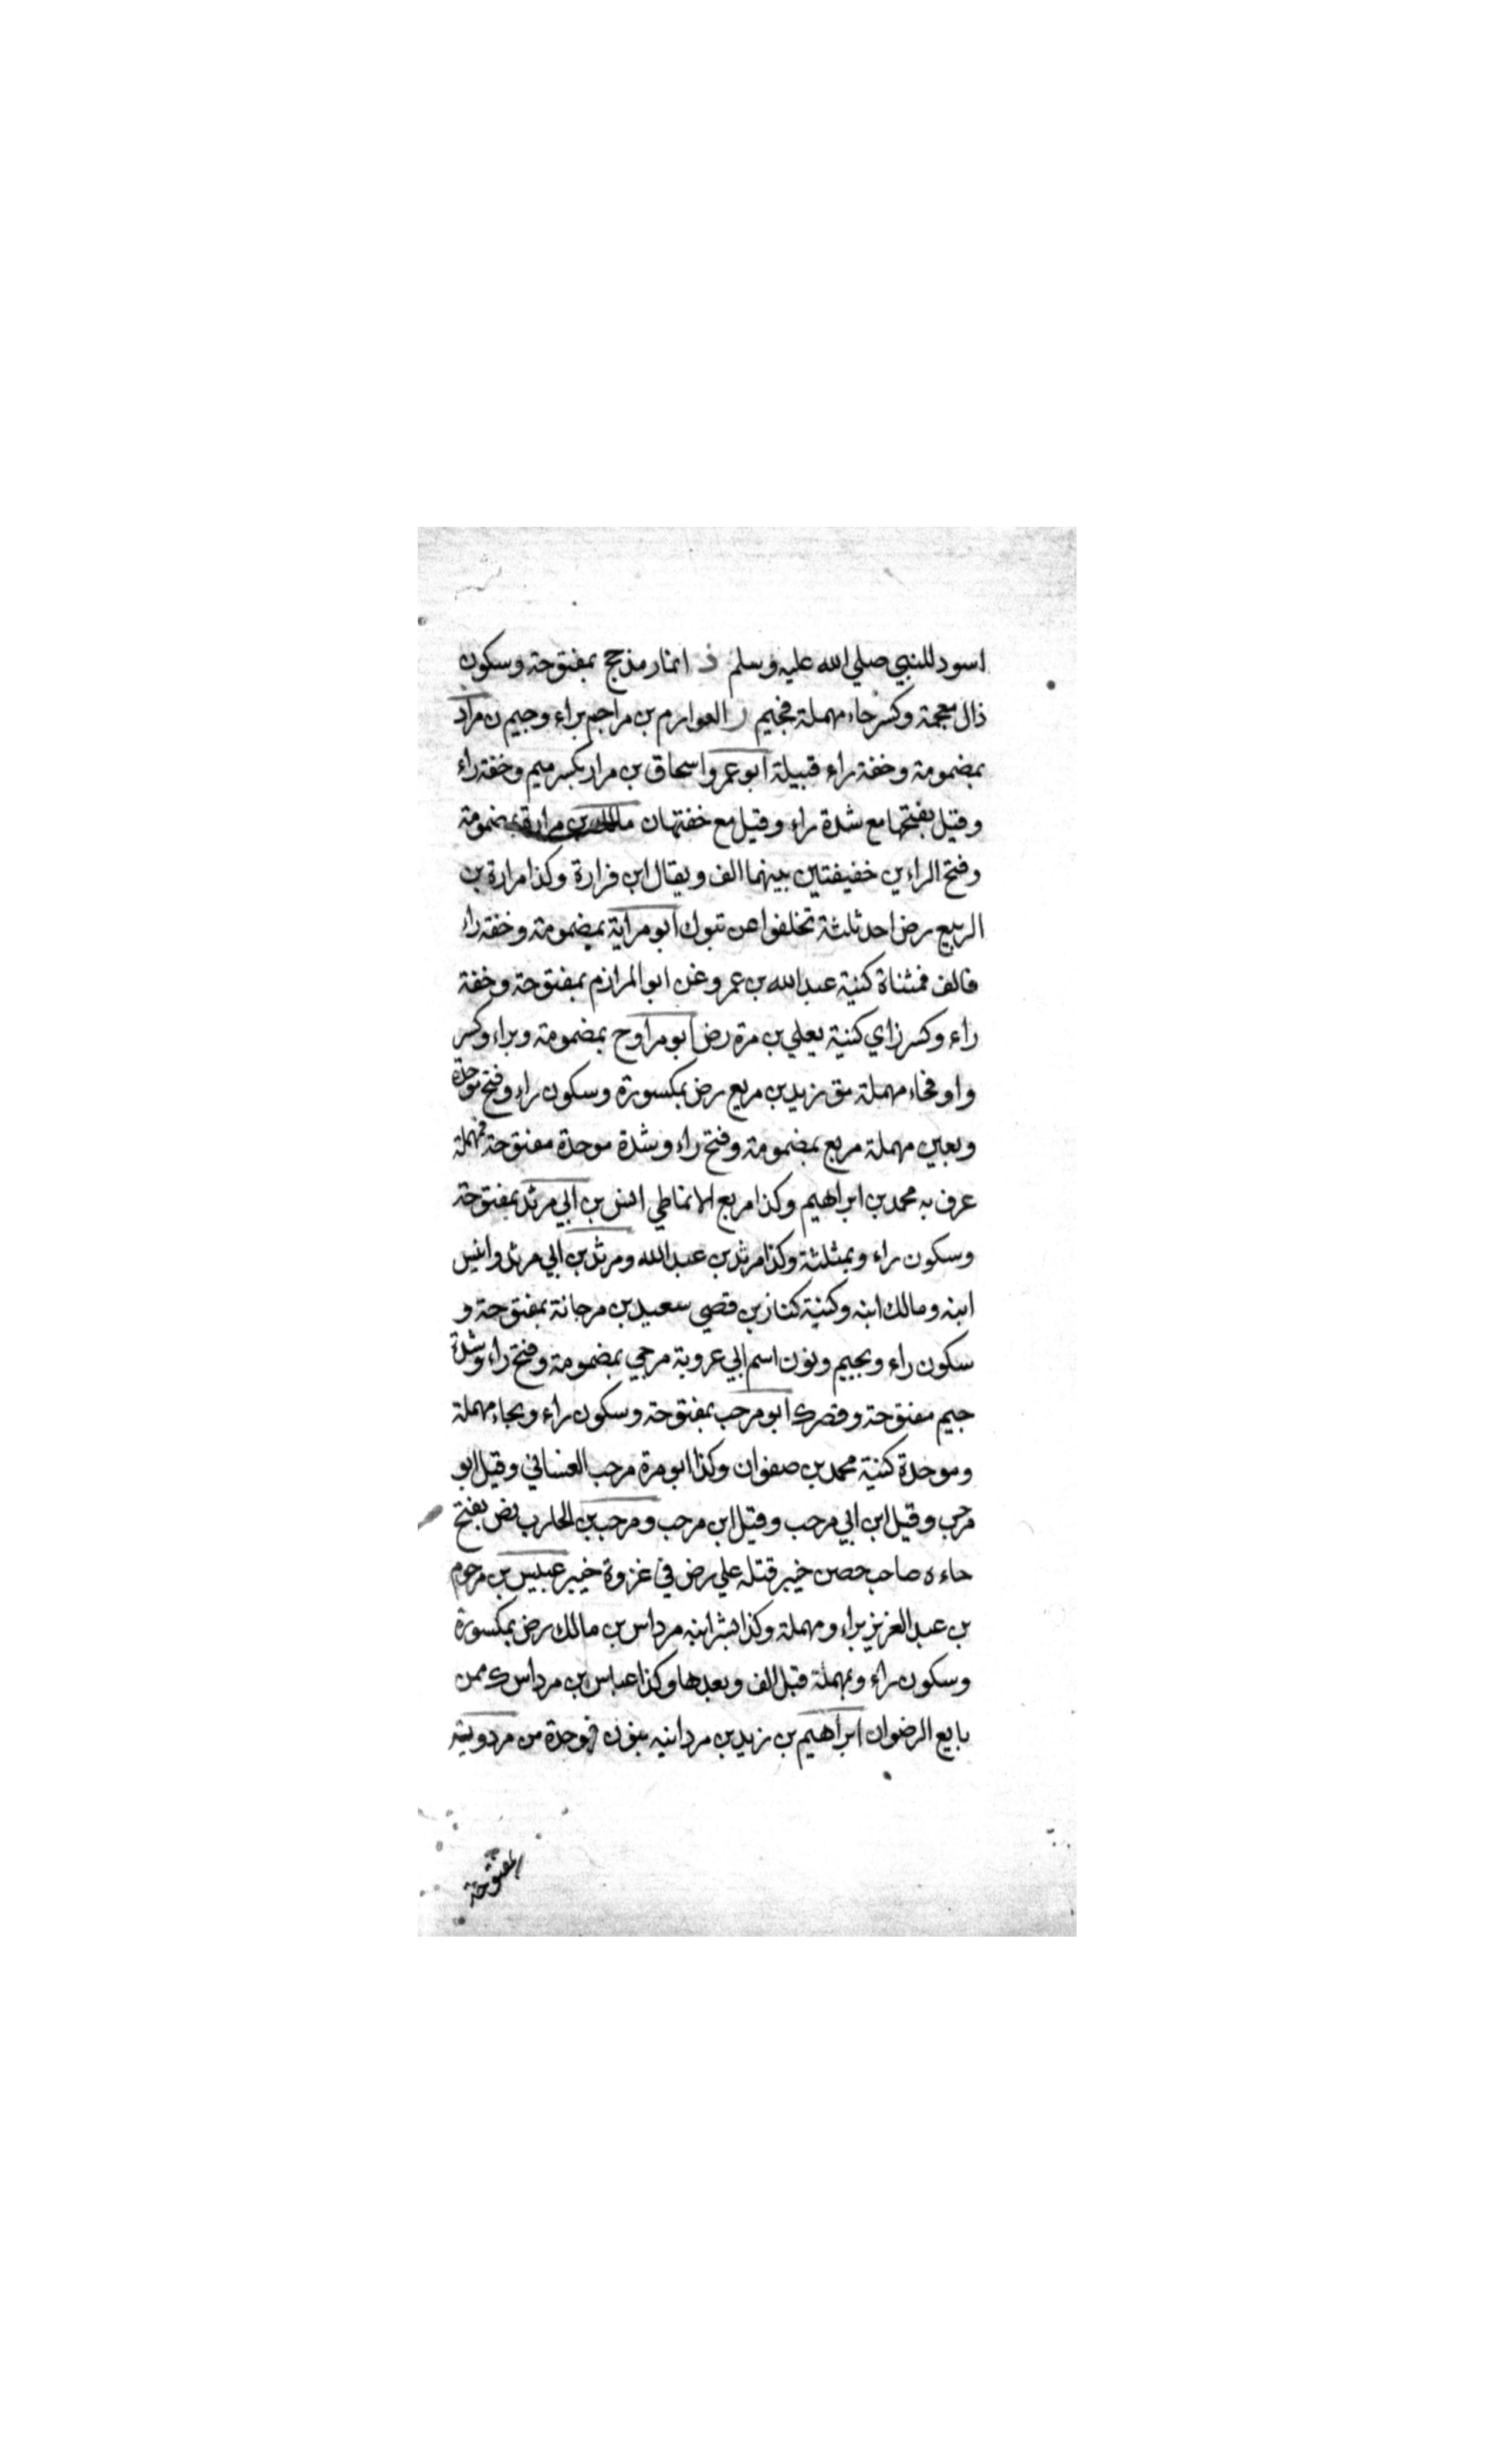 اسود للنبي صلي الله عليه وسلم ذ انمار مذحج بمفتوحة وسكون
ذال معجمة وكسر حاء مهملة فجيم ر العوام بن مراجم براء وجيم ن مراد
بمضمومة وخفة راء قبيلة ابو عمرو اسحاق بن مرار بكسر ميم وخفة راء
وقيل بفتحها مع شدة راء وقيل مع خفتها ن مالك بن مرارة بمضمومة
وفتح الراءين خفيفتين بينهما الف ويقال ابن فزارة وكذا مرارة بن
الربيع رض احد ثلثة تخلفوا عن تبوك ابو مراية بمضمومة وخفة راء
فالف فمثناة كنية عبد الله بن عمرو غن ابو المرازم بمفتوحة وخفة
راء وكسر زاي كنية يعلي بن مرة رض ابو مراوح بمضمومة وبراء وكسر
واو فحاء مهملة مق زيد بن مربع رض بمكسورة وسكون راء وفتح موحدة
وبعين مهملة مربع بمضمومة وفتح راء وشدة موحدة مفتوحة فمهملة
عرف به محمد بن ابراهيم وكذا مربع الانماطي انس بن ابي مرثد بمفتوحة
وسكون راء وبمثلثة وكذا مرثد بن عبد الله ومرثد بن ابي مرثد وانيس
ابنه ومالك ابنه وكنية كناز بن قصي سعيد بن مرجانة بمفتوحة و
سكون راء وبجيم ونون اسم ابي عروبة مرجي بمضمومة وفتح راء وشدة
جيم مفتوحة وقصر ك ابو مرحب بمفتوحة وسكون راء وبحاء مهملة
وموحدة كنية محمد بن صفوان وكذا ابو مرة مرحب الغساني وقيل ابو
مرحب وقيل ابن ابي مرحب وقيل ابن مرحب ومرحب بن الحارب يض بفتح
حاءه صاحب حصن خيبر قتله علي رض في غزوة خيبر عبيس بن مرحوم
بن عبد العزيز براء ومهملة وكذا بشر ابنه مرداس بن مالك رض بمكسورة
وسكون راء وبمهملة قبل الف وبعدها وكذا عباس بن مرداس ك ممن
بايع الرضوان ابراهيم بن زيد بن مردانبه بنون فموحدة من مردويه
بمفتوحة